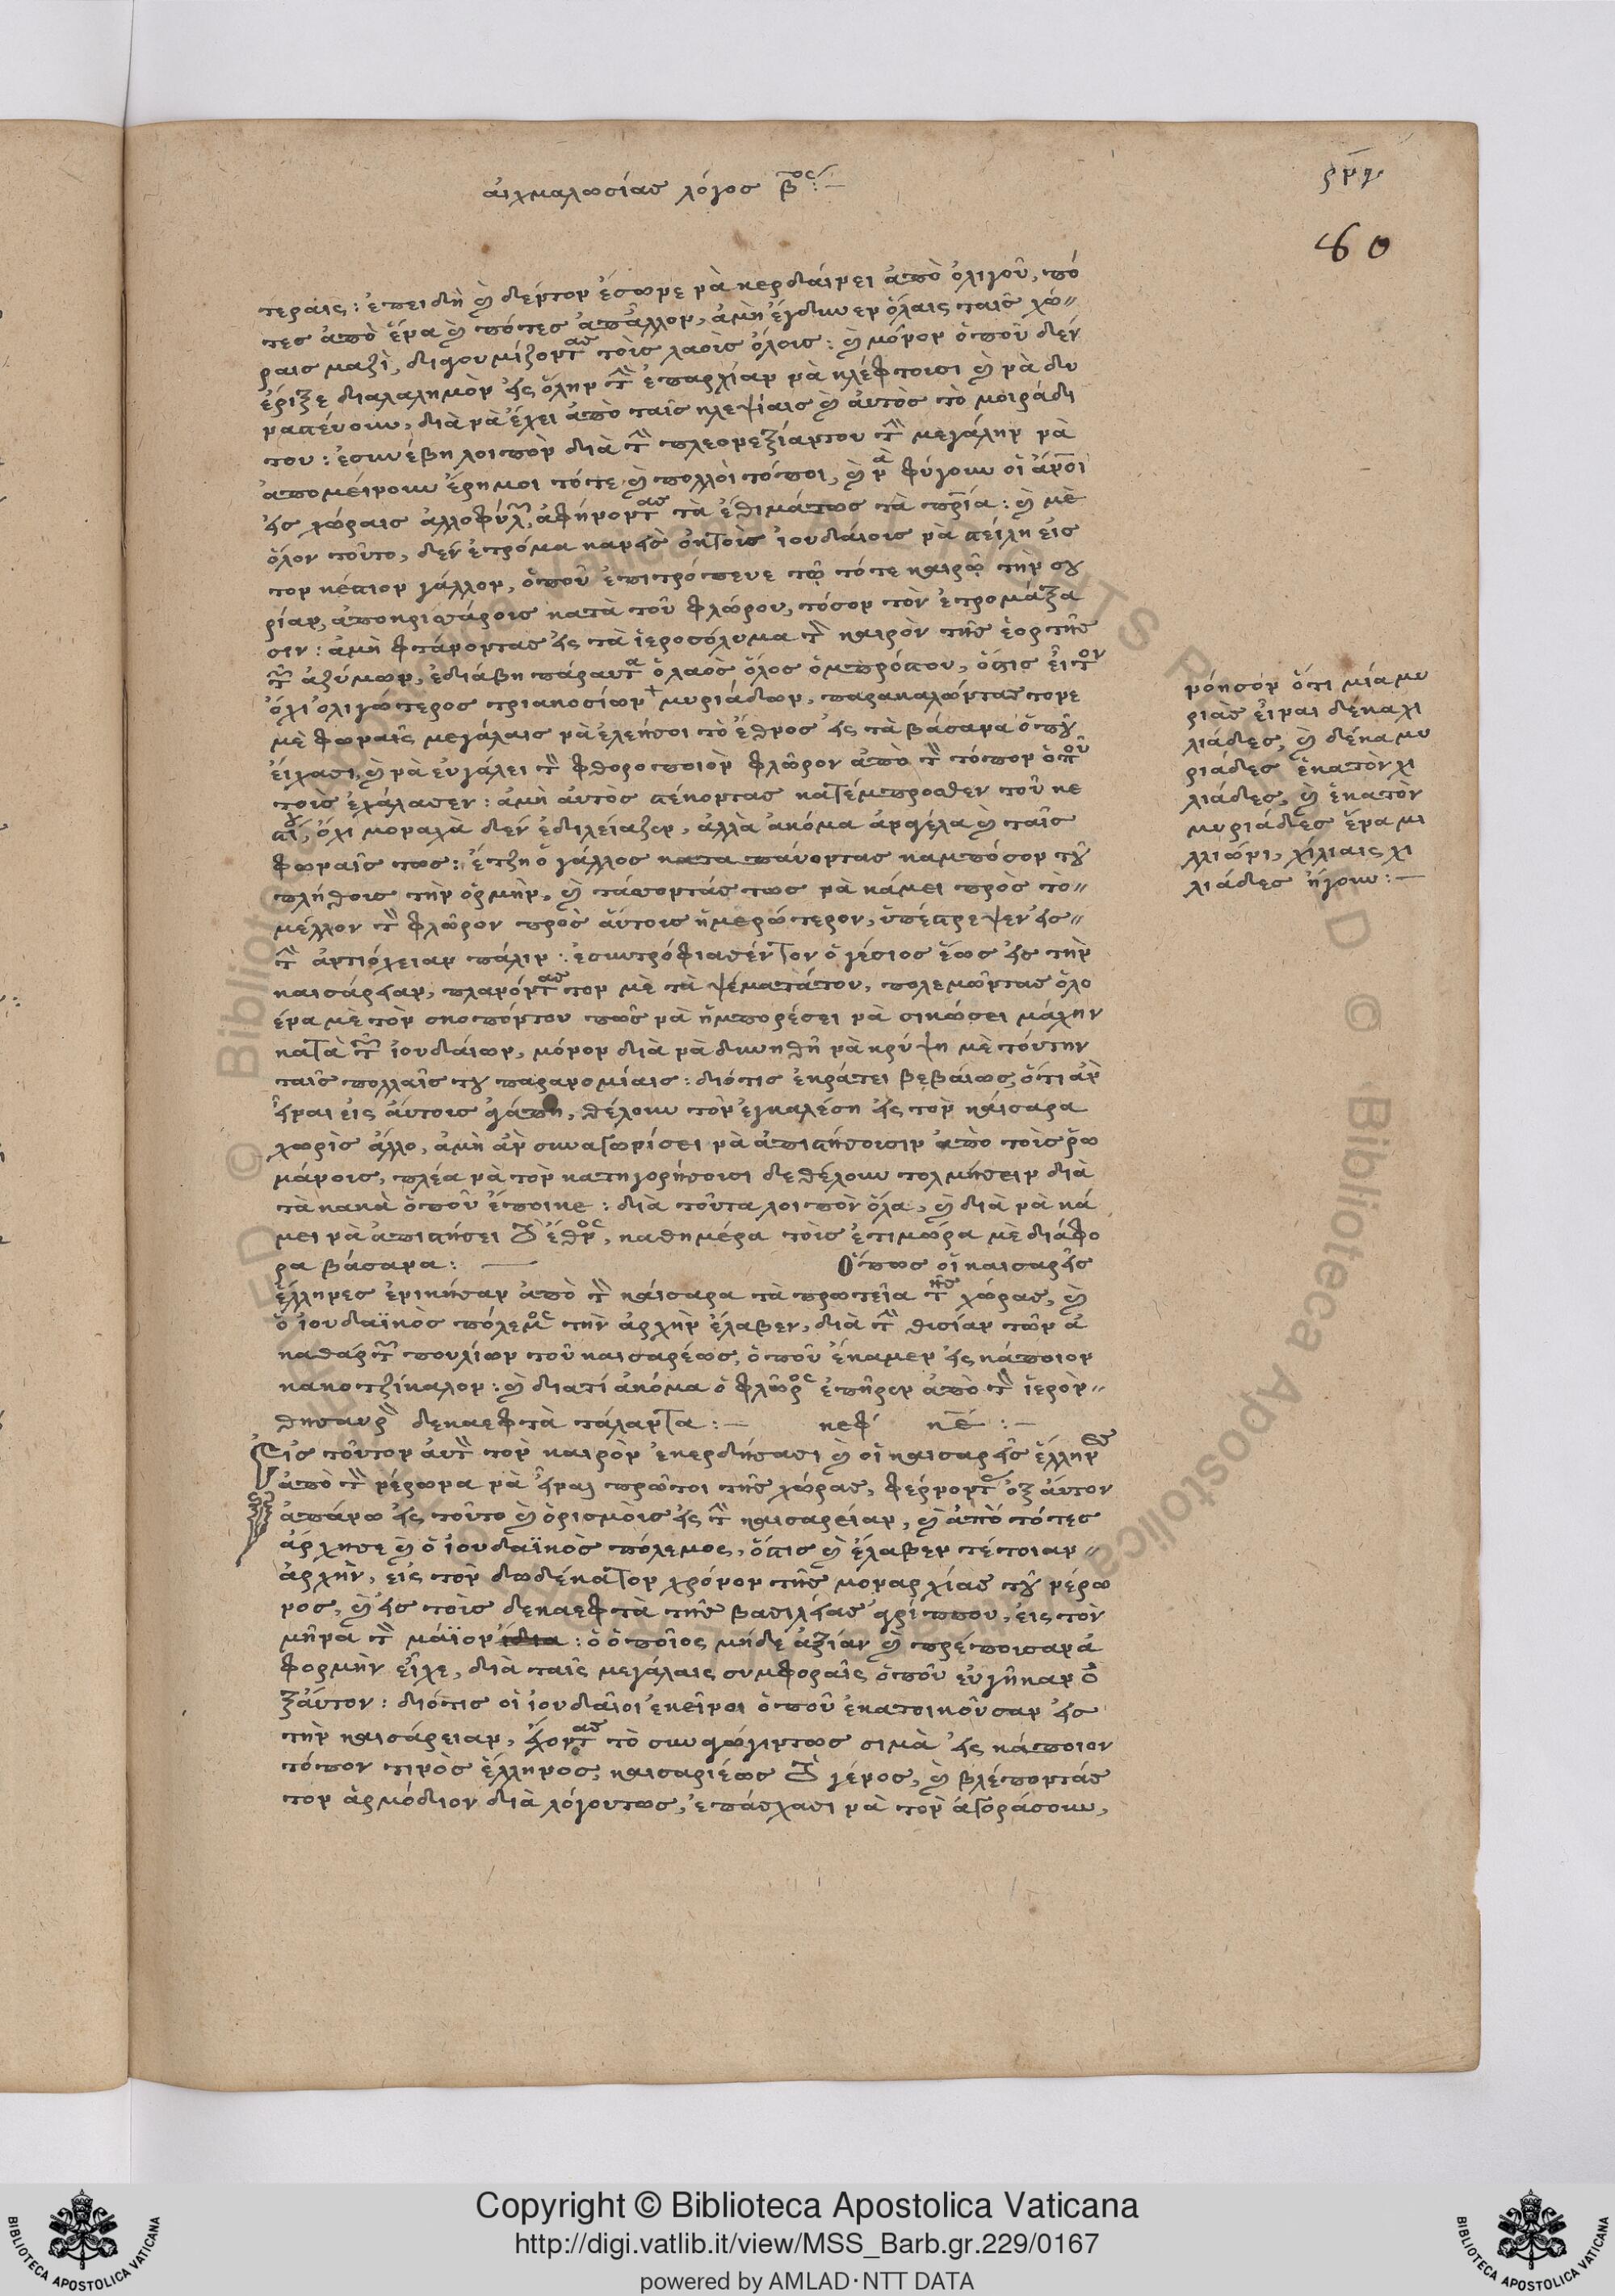 αἰχμαλωσίας λόγος βος:
60
τεραις: ἐπειδὴ καὶ δέντον ἔσωνε νὰ κερδαίνει ἀπὸ ὀλιγοῦ, πό
τες ἀπὸ ἕνα καὶ πότες ἀπάλλον, ἀμὴ ἔγδυνεν ὅλαις ταῖς χώ
ραις μαζὶ, διαγουμίζοντας τοῖς λαοῖς ὅλοις: καὶ μόνον ὁποῦ δὲν
ἔριξε διαλαλημὸν εἰς ὅλην τὴν ἐπαρχίαν νὰ κλέφτουσι καὶ νὰ δυ
ναστεύουν, διὰ νὰ ἔχει ἀπὸ ταῖς κλεψίαις καὶ αὐτὸς τὸ μοιράδι
του: ἐσυνέβη λοιπὸν διὰ τὴν πλεονεξίαντου τὴν μεγάλην νὰ
ἀπομείνουν ἔρημοι τότε καὶ πολλοὶ τόποι, καὶ νὰ φύγουν οἱ ἄνοι
εἰς χώραις ἀλλοφύλων, ἀφήνοντας τὰ ἐθίματως τὰ πρία: καὶ μὲ
ὅλον τοῦτο, δὲν ἐτρόμα κανεὶς ἐκ τοῖς ἰουδαίοις νὰ στείλη εἰς
τον κέστιον γάλλον, ὁποῦ ἐπιτρόπευε τῷ τότε καιρῷ τὴν συ
ρίαν, ἀποκρισάροις κατὰ τοῦ φλώρου, τόσον τὸν ἐτρομάξα
σιν: ἀμὴ φτάνοντας εἰς τὰ ἱεροσόλυμα τὸν καιρὸν τῆς ἑορτῆς
τῶν ἀζύμων, ἐδιάβη πάραυτα ὁ λαὸς ὅλος ὀμπρόστου, ὅστις ἦτον
ὄχι ὀλιγώτερος τριακοσίων + μυριάδων, παρακαλῶντας τονε
μὲ φωναῖς μεγάλαις νὰ ἐλεήσοι τὸ ἔθνος εἰς τὰ βάσανα ὁποῦ
εἴχασι, καὶ νὰ εὐγάλει τὸν φθοροποιὸν φλῶρον ἀπὸ τὸν τόπον ὁποῦ
τοῖς ἐχάλασεν: ἀμὴ αὐτὸς στέκοντας κατέμπροσθεν τοῦ κε
στίου, ὄχι μοναχὰ δὲν ἐδιλείαζεν, ἀλλὰ ἀκόμα ἀνφέλα καὶ ταῖς
φωναῖς τως: ἔτζη ὁ γάλλος καταπάυοντας καμπόσον τοῦ
πλήθους τὴν ὁρμὴν, καὶ τάσοντάς τως νὰ κάμει πρὸς τὸ
μέλλον τὸν φλῶρον πρὸς αὔτοις ἡμερώτερον, ὑπέστρεψεν εἰς
τὴν ἀντιόχειαν πάλιν: ἐσυντρόφιασέν τον ὁ γέσιος ἕως εἰς τὴν
καισάρειαν, πλανόντας τον μὲ τὰ ψέματάτου, πολεμῶντας ὁλο
ένα μὲ τὸν σκοπόντου πῶς νὰ ἠμπορέσει νὰ σικώσει μάχην
κατὰ τῶν ἰουδαίων, μόνον διὰ νὰ δυνηθῆ νὰ κρύψη μὲ τούτην
ταῖς πολλαῖς του παρανομίαις: διότις ἐκράτει βεβαίως, ὅτι ἂν
εἶναι εἰς αὔτοις ἀγάπη, θέλουν τὸν ἐγκαλέση εἰς τὸν καίσαρα
χωρὶς ἄλλο, ἀμὴ ἂν συναφωρίσει νὰ ἀπιστήσουσιν ἀπὸ τοῖς ῥω
μάνοις, πλέα νὰ τὸν κατηγορήσουσι δὲ θέλουν τολμήσειν διὰ
τὰ κακὰ ὁποῦ ἔποικε: διὰ τοῦτα λοιπὸν ὅλα, καὶ διὰ νὰ κά
μει νὰ ἀπιστήσει τὸ ἔθνος, καθημέρα τοῖς ἐτιμώρα μὲ διάφο
ρα βάσανα: Ὅπως οἱ καισαρεῖς
ἕλληνες ἐνικήσαν ἀπὸ τὸν καίσαρα τὰ πρωτεῖα τῆς χώρας, καὶ
ὁ ἰουδαϊκὸς πόλεμος τὴν ἀρχὴν ἔλαβεν, διὰ τὴν θισίαν τῶν ἀ
καθάρτων πουλίων τοῦ καισαρέως, ὁποῦ ἔκαμεν εἰς κάποιον
κακοτζίκαλον: καὶ διατί ἀκόμα ὁ φλῶρος ἐπῆρεν ἀπὸ τὸν ἱερὸν
θησαυρὸν δεκαεφτὰ τάλαντα: κεφ κε:
Εἰς τοῦτον αὐτὸν τὸν καιρὸν ἐκερδήσασι καὶ οἱ καισαρεῖς ἕλληνες
ἀπὸ τὸν νέρωνα νὰ εἶναι πρῶτοι τῆς χώρας, φέρνοντες ὀξ αὔτον
ἀπάνω εἰς τοῦτο καὶ ὁρισμὸις εἰς τὴν καισαρείαν, καὶ ἀπὸ τότες
ἄρχησε καὶ ὁ ἰουδαϊκὸς πόλεμος, ὅστις καὶ ἔλαβεν τέτοιαν
ἀρχὴν, εἰς τὸν δωδέκατον χρόνον τῆς μοναρχίας τοῦ νέρω
νος, καὶ εἰς τοῖς δεκαεφτὰ τῆς βασιλείας ἀγρίππου, εἰς τὸν
μῆνα τὸν μάϊον: ὁ ὁποῖος μήδε ἀξίαν καὶ πρέποισαν ἀ
φορμὴν εἶχε, διὰ ταῖς μεγάλαις συμφοραῖς ὁποῦ εὐγῆκαν ὀ
ξαύτον: διότις οἱ ἰουδαῖοι ἐκεῖνοι ὁποῦ ἐκατοικοῦσαν εἰς
τὴν καισάρειαν, ἔχοντας τὸ συναγώγιντως σιμὰ εἰς κάποιον
τόπον τινὸς ἕλληνος, καισαριέως τὸ γένος, καὶ βλέποντάς
τον ἁρμόδιον διὰ λόγουτως, ἐπάσχασι νὰ τὸν ἀγοράσουν,
νόησον ὅτι μία μυ
ριὰς εἶναι δέκα χι
λιάδες, καὶ δέκα μυ
ριάδες ἑκατὸν χι
λιάδες, καὶ ἑκατὸν
μυριάδες ἕνα μι
λλιώνι, χίλιαις χι
λιάδες ἤγουν:
Copyright © Biblioteca Apostolica Vaticana
http://digi.vatlib.it/view/MSS_Barb.gr.229/0167
powered by AMLAD·NTT DATA
BIBLIOTECA APOSTOLICA VATICANA
BIBLIOTECA APOSTOLICA VATICANA